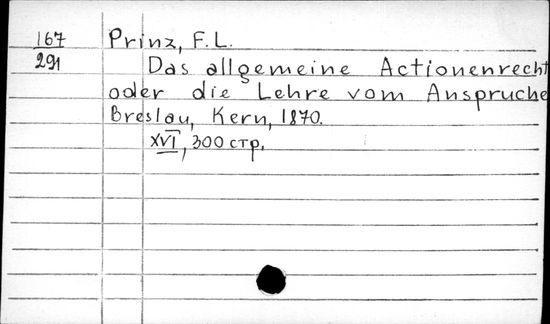 167 Prinz, F.L.
291 Das allgemeine Actionenrecht
oder die Lehre vom Anspruche
Breslau, Kern, 1870.
XVI, 300 стр.